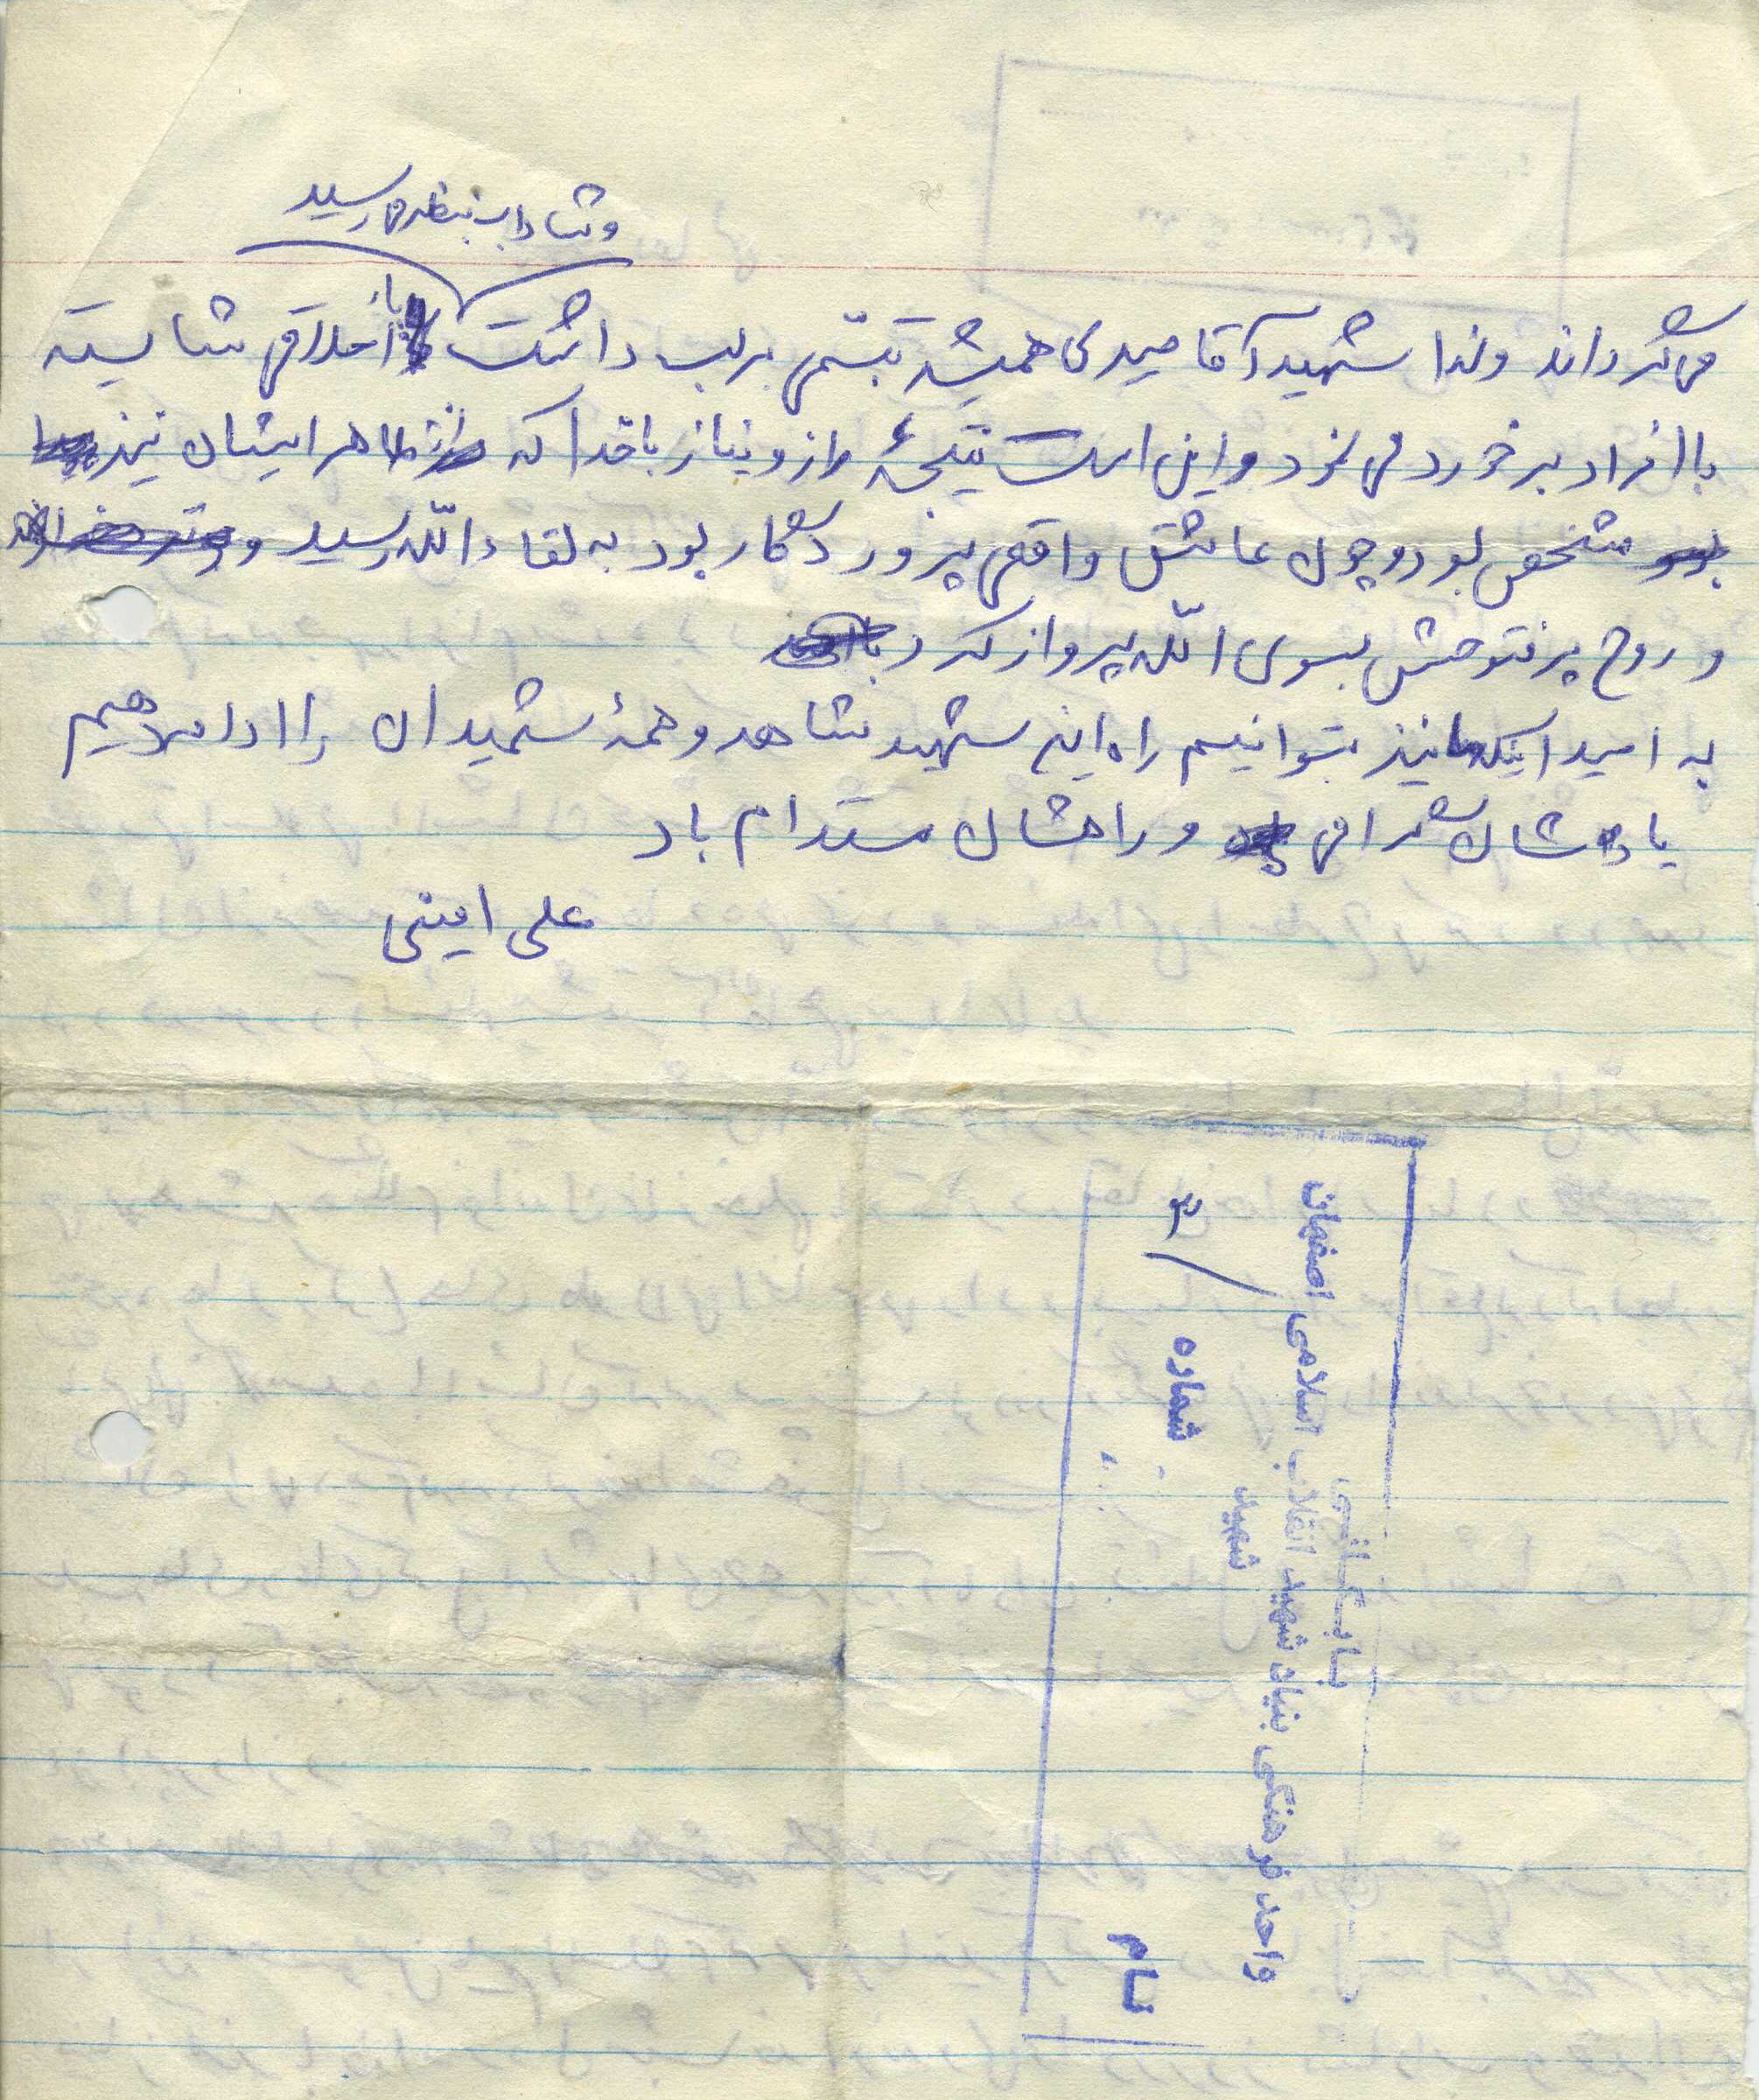 و شاداب بنظر میرسید
می گرداند ولذا شهید آقا صیدی همیشه تبسّمی بر لب داشت با اخلاقی شایسته
با افراد برخورد می نمود و این است نتیجهٔ راز و نیاز با خدا که از ظاهر ایشان نیز
مشخص بود و چون عاشق واقعی پروردگار بود به لقاء اللّه رسید و
و روح پر فتوحش بسوی اللّه پرواز کرد
به امید اینکه ما نیز بتوانیم راه این شهید شاهد و همهٔ شهیدان را ادامه دهیم
یادشان گرامی و راهشان مستدام باد
علی امینی
بایگانی
واحد فرهنگی بنیاد شهید انقلاب اسلامی اصفهان
شهید
نام شماره ۳/